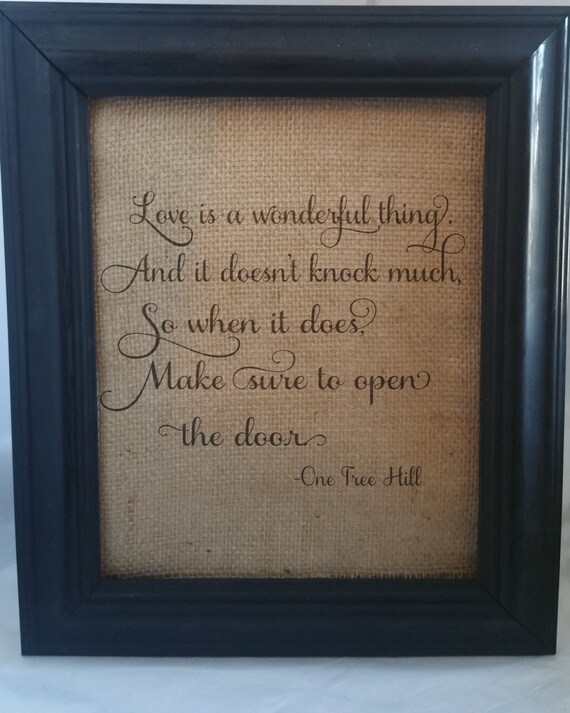 Love is a wonderful thing.
And it doesn't knock much,
So when it does,
Make sure to open
the door
-One Tree Hill